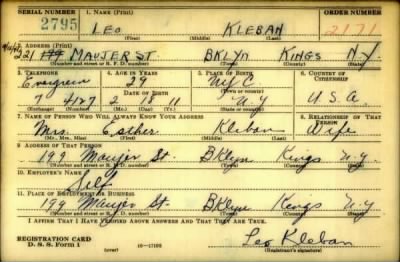 SERIAL NUMBER 1. NAME (Print) ORDER NUMBER
2795 LEO KLEBAN 2171
(First) (Middle) (Last)
2. ADDRESS (Print)
221 199 MAUJER ST BKLYN KINGS NY
(Number and street or R. F. D. number) (Town) (County) (State)
3. TELEPHONE 4. AGE IN YEARS 5. PLACE OF BIRTH 6. COUNTRY OF CITIZENSHIP
Evergreen 29 NYC
DATE OF BIRTH (Town or county)
7 4127 2 18 11 N.Y. U.S.A.
(Exchange) (Number) (Mo.) (Day) (Yr.) (State or country)
7. NAME OF PERSON WHO WILL ALWAYS KNOW YOUR ADDRESS 8. RELATIONSHIP OF THAT PERSON
Mrs. Esther Kleban Wife
(Mr., Mrs., Miss) (First) (Middle) (Last)
9. ADDRESS OF THAT PERSON
199 Maujer St. BKlyn Kings N.Y.
(Number and street or R. F. D. number) (Town) (County) (State)
10. EMPLOYER'S NAME
Self
11. PLACE OF EMPLOYMENT OR BUSINESS
199 Maujer St BKlyn Kings N.Y.
(Number and street or R. F. D. number) (Town) (County) (State)
I AFFIRM THAT I HAVE VERIFIED ABOVE ANSWERS AND THAT THEY ARE TRUE.
REGISTRATION CARD
D. S. S. Form 1 16—17105 Leo Kleban
(Registrant's signature)